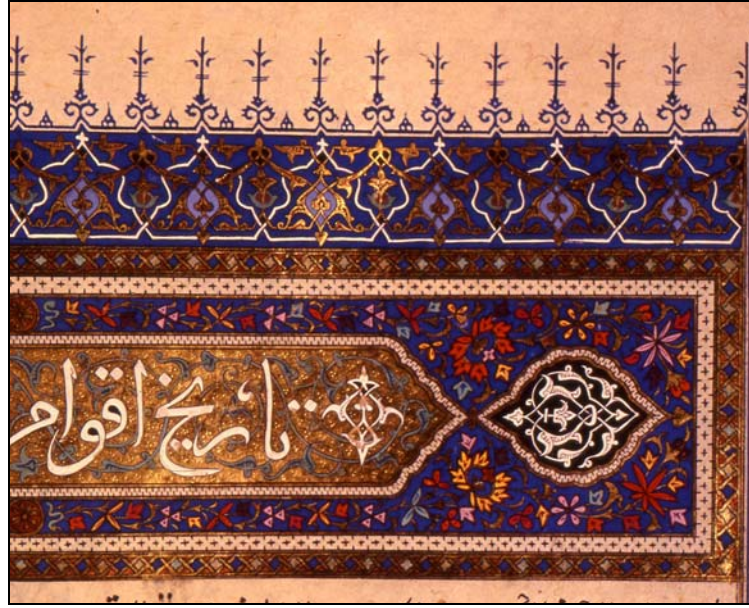 تاریخ اقوام